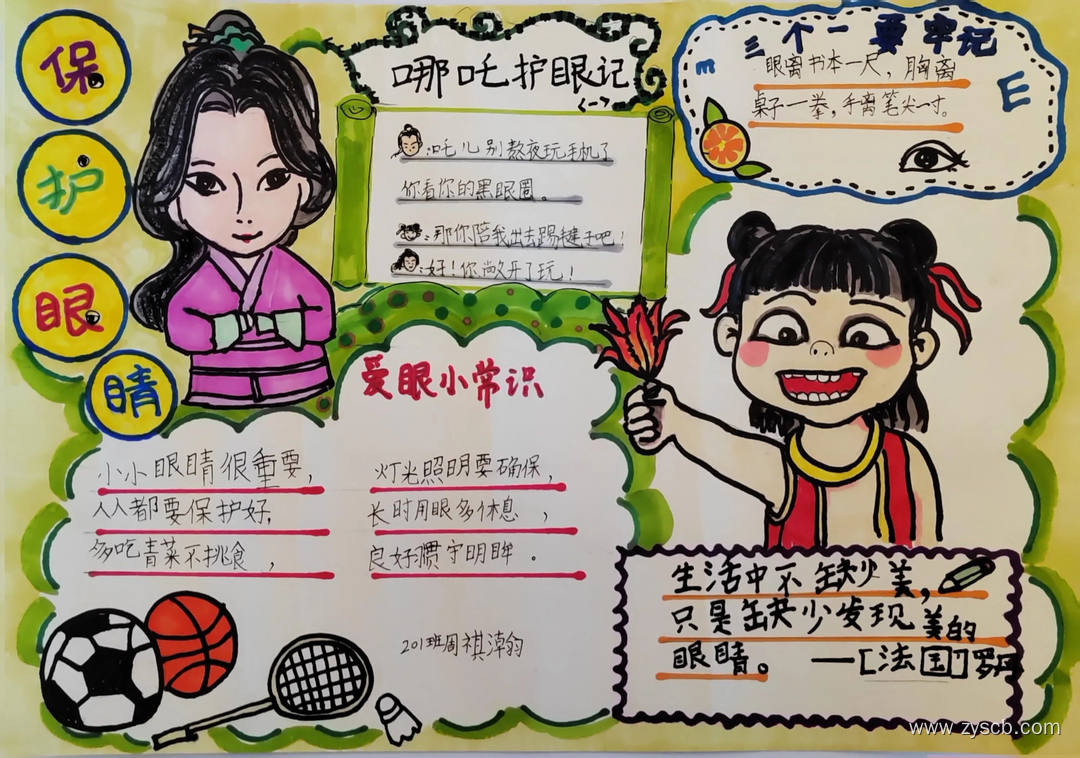 保
护
眼
睛
哪吒护眼记
(一)
:吒儿别熬夜玩手机了
你看你的黑眼圈。
:那你陪我出去踢毽子吧!
:好!你敞开了玩!
三个一要牢记
眼离书本一尺,胸离
桌子一拳,手离笔尖一寸。
m
E
爱眼小常识
小小眼睛很重要,
人人都要保护好,
多吃青菜不挑食,
灯光照明要确保,
长时用眼多休息,
良好惯守明眸。
201班周祺
生活中不缺少美,
只是缺少发现美的
眼睛。 —[法国]罗丹
www.zyscb.com